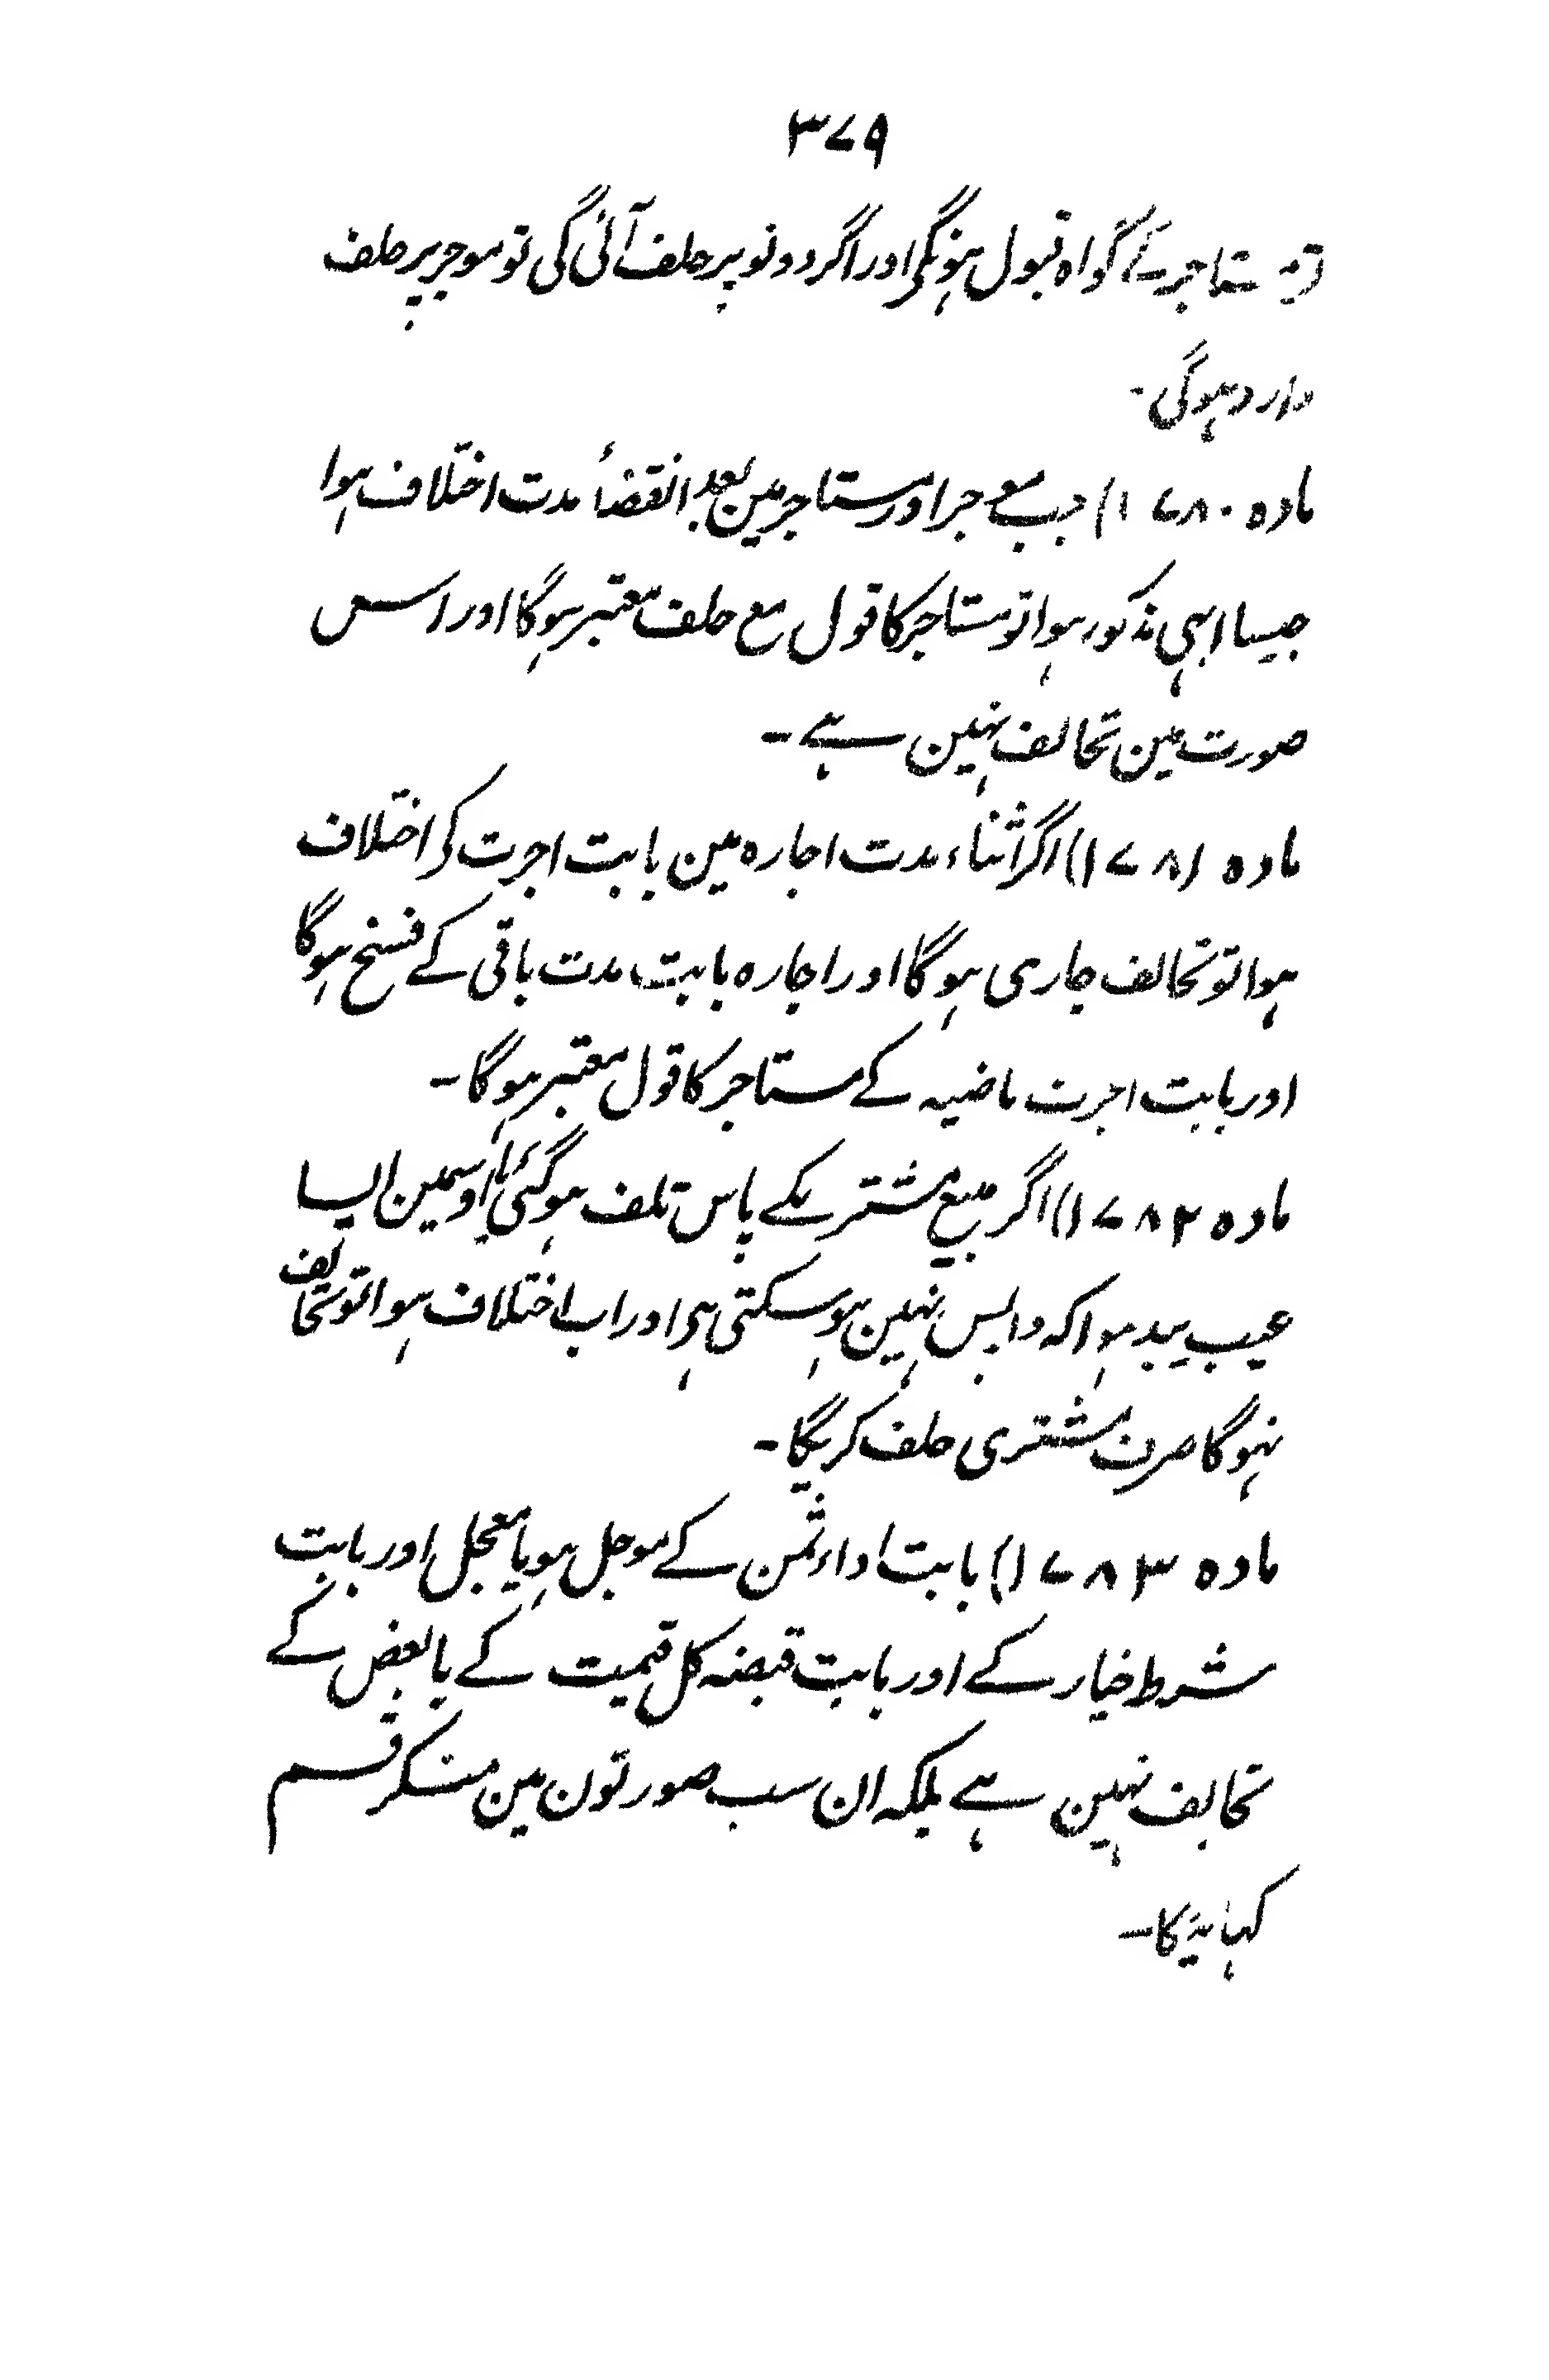 ۳۷۹
مستاجر کے گواہ قبول ہونگی اور اگر دونو پر حلف آئی گی تو موجر پر حلف
وارد ہوگی۔
مادہ ۱۷۸۰) جب موجر اور مستاجر مین بعد انقضاٗ مدت اختلاف ہوا
جیسا ابہی مذکور ہوا تو مستاجر کا قول مع حلف معتبر ہوگا اور اس
صورت مین تحالف نہین ہے۔
مادہ ۱۷۸۱) اگر اثناء مدت اجارہ مین بابت اجرت کی اختلاف
ہوا تو تحالف جاری ہوگا اور اجارہ بابت مدت باقی کے فسخ ہوگا
اور بابت اجرت ماضیہ کے مستاجر کا قول معتبر ہوگا۔
مادہ ۱۷۸۲) اگر مبیع مشتریکے پاس تلف ہوگئی یا اوسمین ایسا
عیب پیدا ہوا کہ واپس نہین ہوسکتی ہی اور اب اختلاف ہوا تو تحالف
نہوگا صرف مشتری حلف کریگا۔
مادہ ۱۷۸۳) بابت اداء ثمن کے موجل ہو یا معجل اور بابت
شرط خیار کے اور بابت قبضہ کل قیمت کے یا بعض کے
تحالف نہین ہے بلکہ ان سب صورتون مین منکر قسم
کہائیگا۔